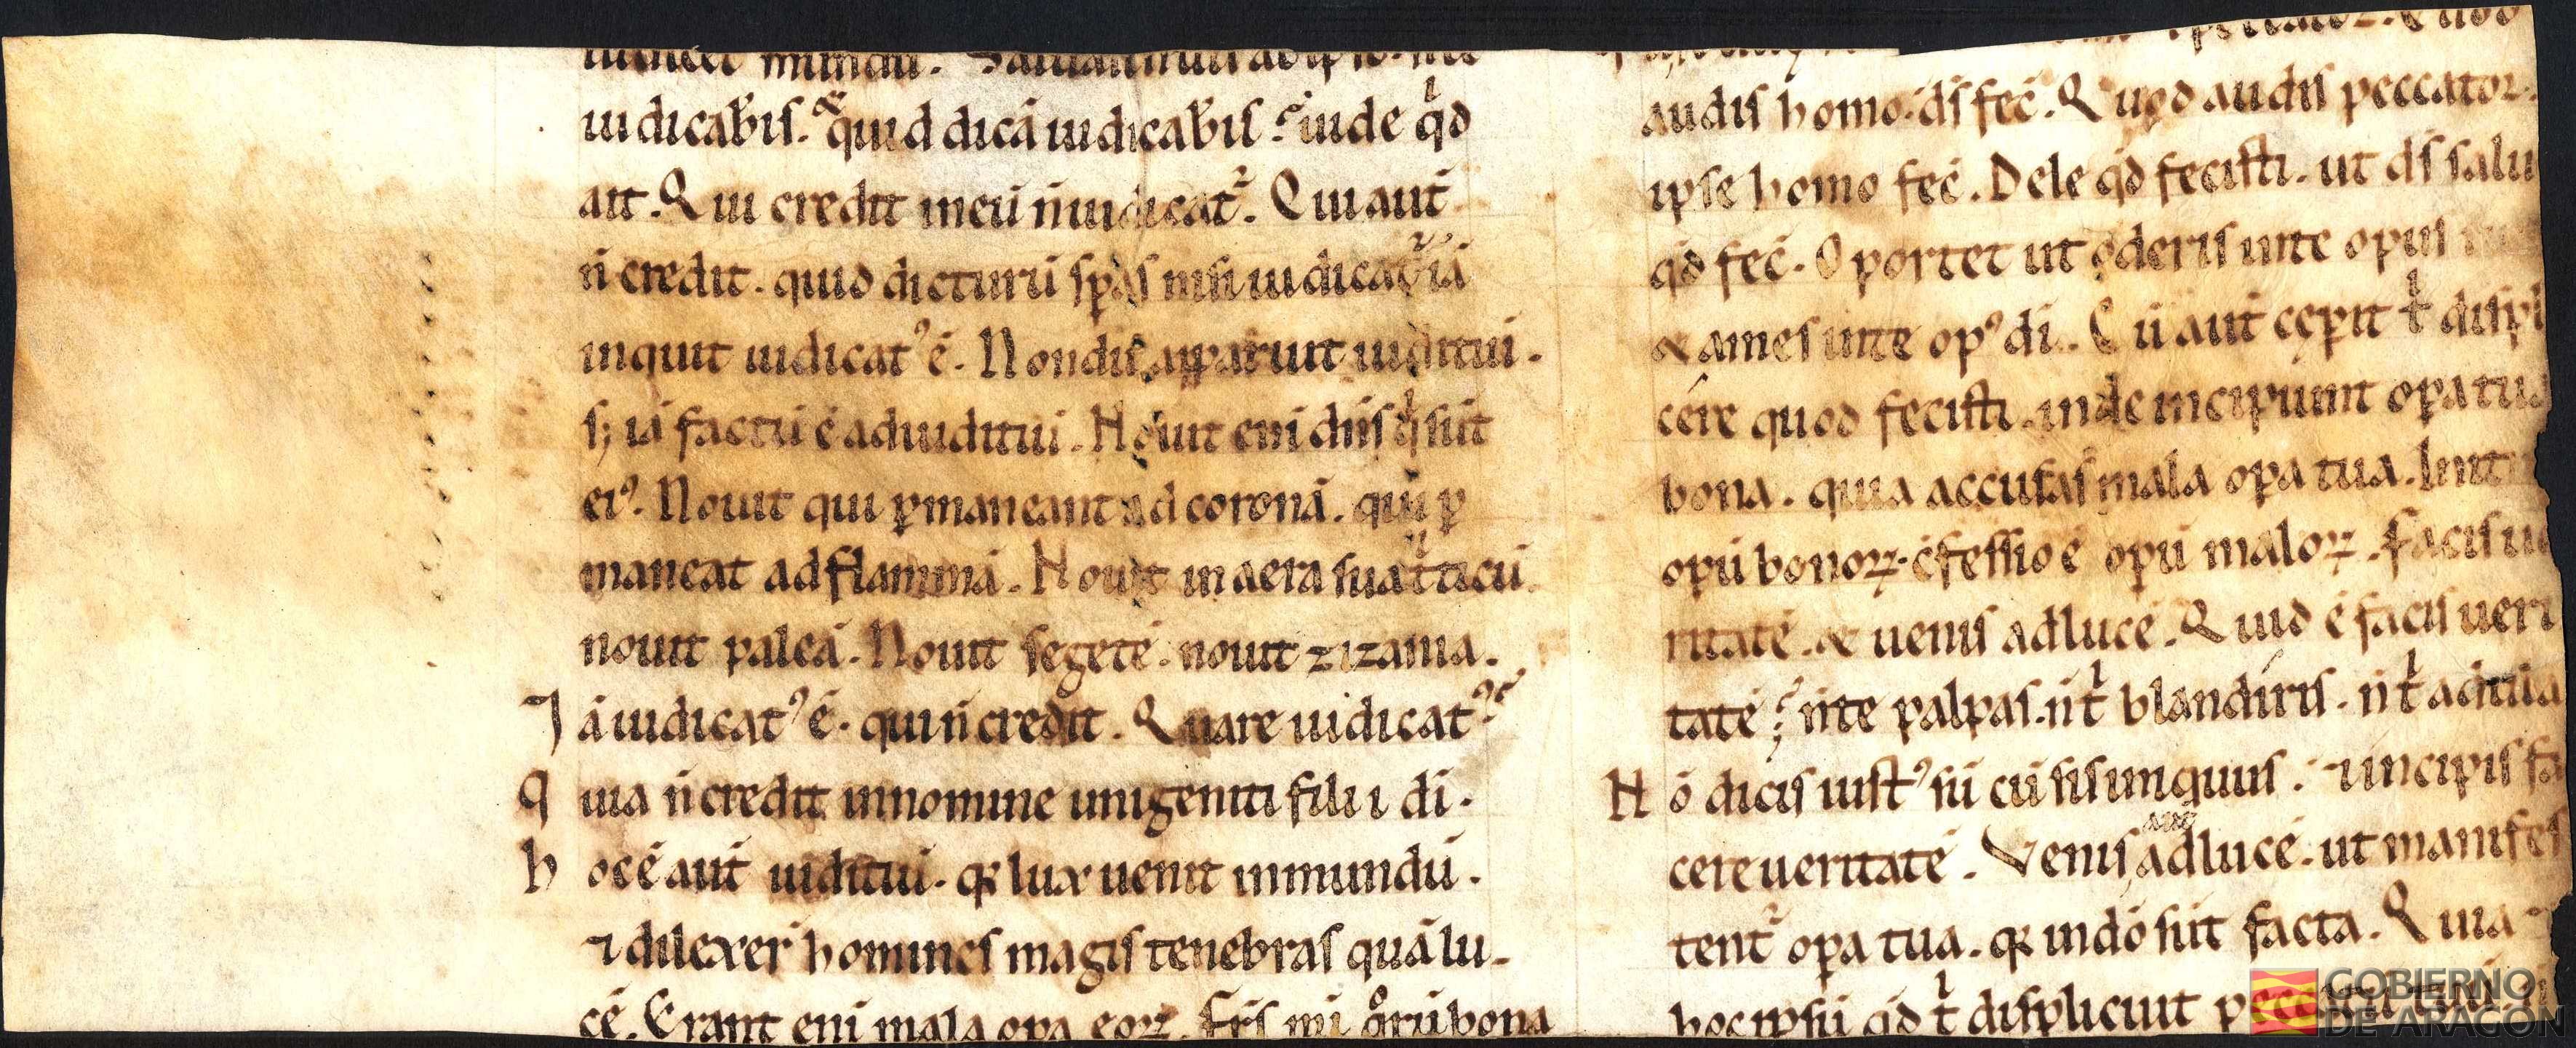 iudicet mundū. Saluari nun ab ipso. ex te
iudicab̄is. & quid dicā iudicab̄is? uide qd
ait. Qui credit in eū n̄ iudicat᷑. Qui aut̄
n̄ credit. quid dicturū sp̄as nisi iudicat᷑ iā
inquit iudicatꝰ ē. Nondū apparuit iuditiū.
s; iā factū ē ad iuditiū. Nouit eni dn̄s q̄ sūt
eiꝰ. Nouit qui ꝑmaneant ad coronā. qui ꝑ
maneat ad flammā. Nouit in aera sua t͛ticū
nouit paleā. Nouit segetē. nouit zizania.
Iā iudicatꝰ ē. qui n̄ credit. Quare iudicatꝰ?
quia n̄ credit in nomine unigeniti filii di.
hoc ē aut̄ iuditiū. qꝛ lux uenit in mundū.
⁊ dilexer̄ homines magis tenebras quā lu-
cē. Erant eni mala opa eoꝝ. Frs̄ mi q̊rū bona
audis homo. ds̄ fec̄. Quod audis peccator.
ipse homo fec̄. Dele qd fecisti. ut ds̄ salu
qd fec̄. Oportet ut oderis in te opus
& ames in te opꝰ di. Cū aut̄ cęperit t͛ displ
cere quod fecisti. inde incipiunt opa tua
bona. quia accusas mala opa tua. Init
opū bonoꝝ. c̄fessio ē opū maloꝝ. facis ue
ritatē. & uenis ad lucē. Quid ē facis ueri
tatē? n̄ te palpas. n̄ t͛ blandiris. n̄ t͛ adula
Nō dicis iustꝰ sū cū sis iniquus. ⁊ incipis fa
cere ueritatē. Venis aut̄ ad lucē. ut manifes
tent᷑ opa tua. qꝛ in dō sūt facta. Quia ⁊
hoc ipsū qd t͛ displicuit peccatū tuū
GOBIERNO
DE ARAGON